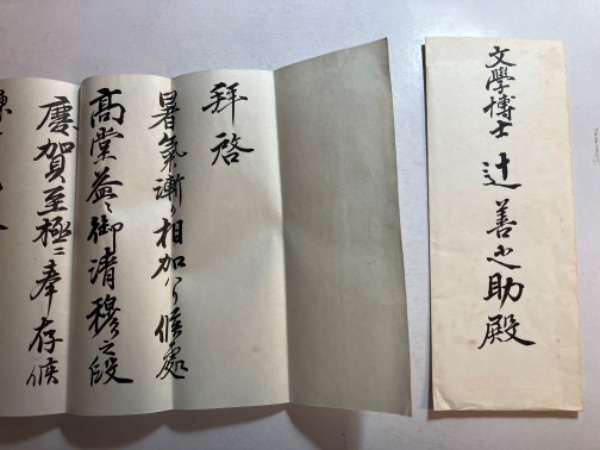 文學博士 辻善之助殿
拜啓
暑氣漸ク相加ハリ候處
高堂益〻御清穆之段
慶賀至極ニ奉存候